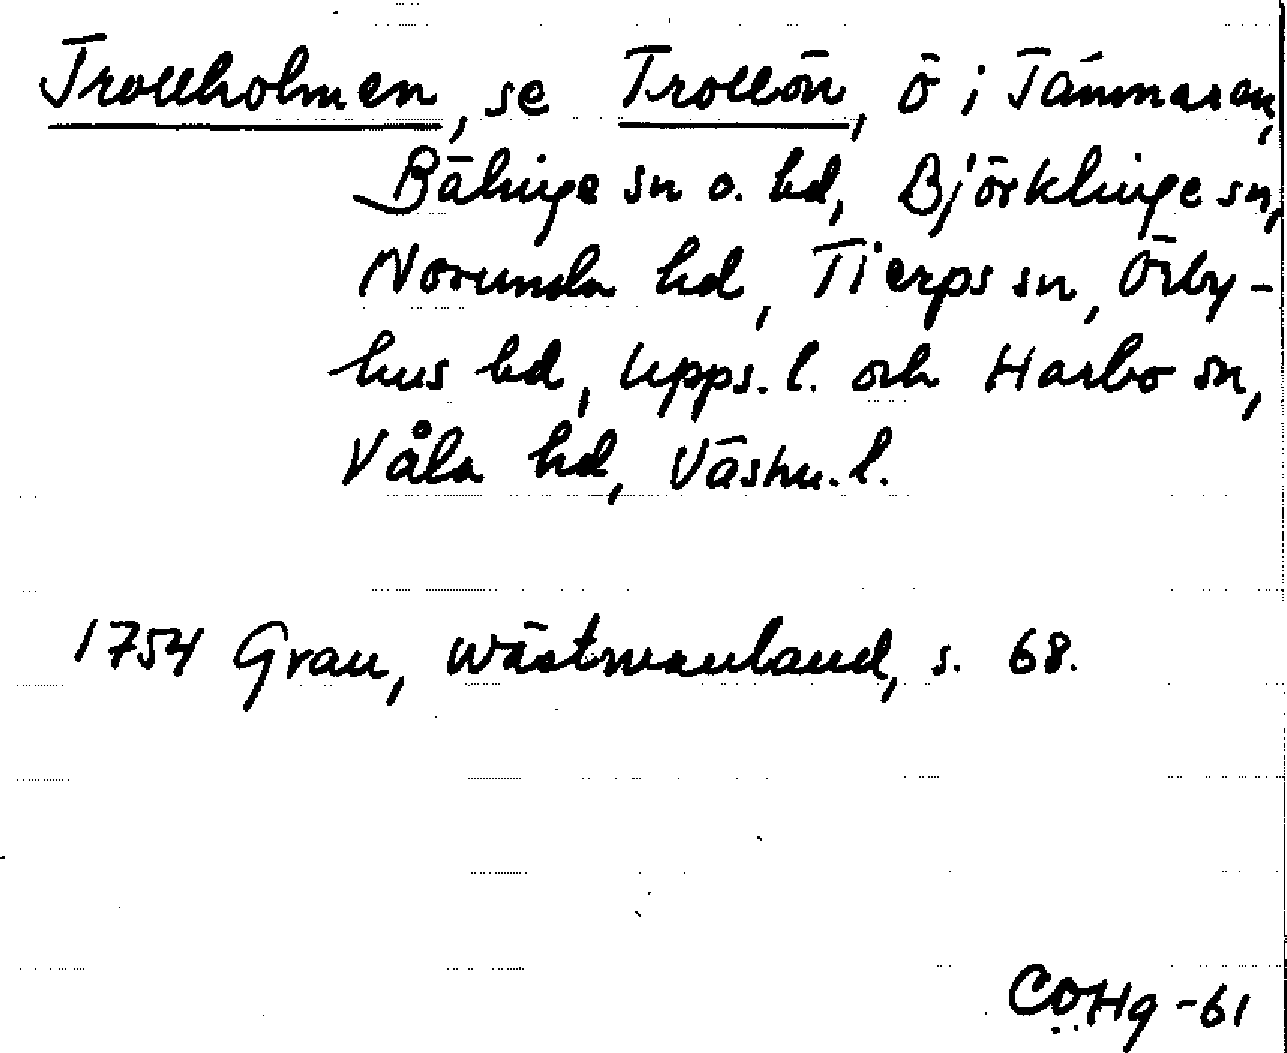 Trollholmen, se Trollön, ö i Tämnaren,
Bälinge sn o. hd, Björklinge sn,
Norunda hd, Tierps sn, Örby-
hus hd, Upps. l. och Harbo sn,
Våla hd, Västm. l.
1754 Grau, Wästmanland, s. 68.
COHg -61